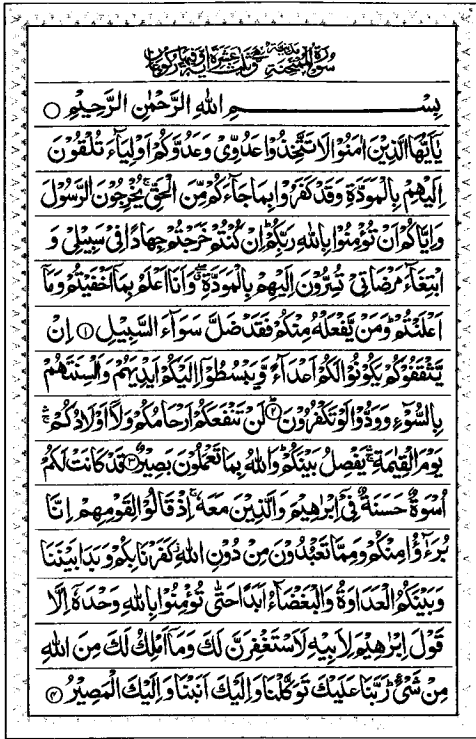 سُوْرَةُ الْمُمْتَحِنَةِ مَدَنِيَّةٌ وَّهِیَ ثَلٰثَ عَشْرَةَ اٰيَةً وَّفِيْهَا رُكُوْعَانِ
بِسْمِ اللهِ الرَّحْمٰنِ الرَّحِيْمِ ○
يٰۤاَيُّهَا الَّذِيْنَ اٰمَنُوْا لَا تَتَّخِذُوْا عَدُوِّىْ وَعَدُوَّكُمْ اَوْلِيَآءَ تُلْقُوْنَ
اِلَيْهِمْ بِالْمَوَدَّةِ وَقَدْ كَفَرُوْا بِمَا جَآءَكُمْ مِّنَ الْحَقِّ ۚ يُخْرِجُوْنَ الرَّسُوْلَ
وَاِيَّاكُمْ اَنْ تُؤْمِنُوْا بِاللهِ رَبِّكُمْ ؕ اِنْ كُنْتُمْ خَرَجْتُمْ جِهَادًا فِىْ سَبِيْلِىْ وَ
ابْتِغَآءَ مَرْضَاتِىْ تُسِرُّوْنَ اِلَيْهِمْ بِالْمَوَدَّةِ ۖ وَاَنَا اَعْلَمُ بِمَاۤ اَخْفَيْتُمْ وَمَاۤ
اَعْلَنْتُمْ ؕ وَمَنْ يَّفْعَلْهُ مِنْكُمْ فَقَدْ ضَلَّ سَوَآءَ السَّبِيْلِ ۝۱ اِنْ
يَّثْقَفُوْكُمْ يَكُوْنُوْا لَكُمْ اَعْدَآءً وَّيَبْسُطُوْۤا اِلَيْكُمْ اَيْدِيَهُمْ وَاَلْسِنَتَهُمْ
بِالسُّوْٓءِ وَوَدُّوْا لَوْ تَكْفُرُوْنَ ۝۲ؕ لَنْ تَنْفَعَكُمْ اَرْحَامُكُمْ وَلَاۤ اَوْلَادُكُمْ ۛۚ
يَوْمَ الْقِيٰمَةِ ۛۚ يَفْصِلُ بَيْنَكُمْ ؕ وَاللهُ بِمَا تَعْمَلُوْنَ بَصِيْرٌ ۝۳ قَدْ كَانَتْ لَكُمْ
اُسْوَةٌ حَسَنَةٌ فِىْۤ اِبْرٰهِيْمَ وَالَّذِيْنَ مَعَهٗ ۚ اِذْ قَالُوْا لِقَوْمِهِمْ اِنَّا
بُرَءٰٓؤُا مِنْكُمْ وَمِمَّا تَعْبُدُوْنَ مِنْ دُوْنِ اللهِ ۫ كَفَرْنَا بِكُمْ وَبَدَا بَيْنَنَا
وَبَيْنَكُمُ الْعَدَاوَةُ وَالْبَغْضَآءُ اَبَدًا حَتّٰى تُؤْمِنُوْا بِاللهِ وَحْدَهٗۤ اِلَّا
قَوْلَ اِبْرٰهِيْمَ لِاَبِيْهِ لَاَسْتَغْفِرَنَّ لَكَ وَمَاۤ اَمْلِكُ لَكَ مِنَ اللهِ
مِنْ شَىْءٍ ؕ رَبَّنَا عَلَيْكَ تَوَكَّلْنَا وَاِلَيْكَ اَنَبْنَا وَاِلَيْكَ الْمَصِيْرُ ۝۴